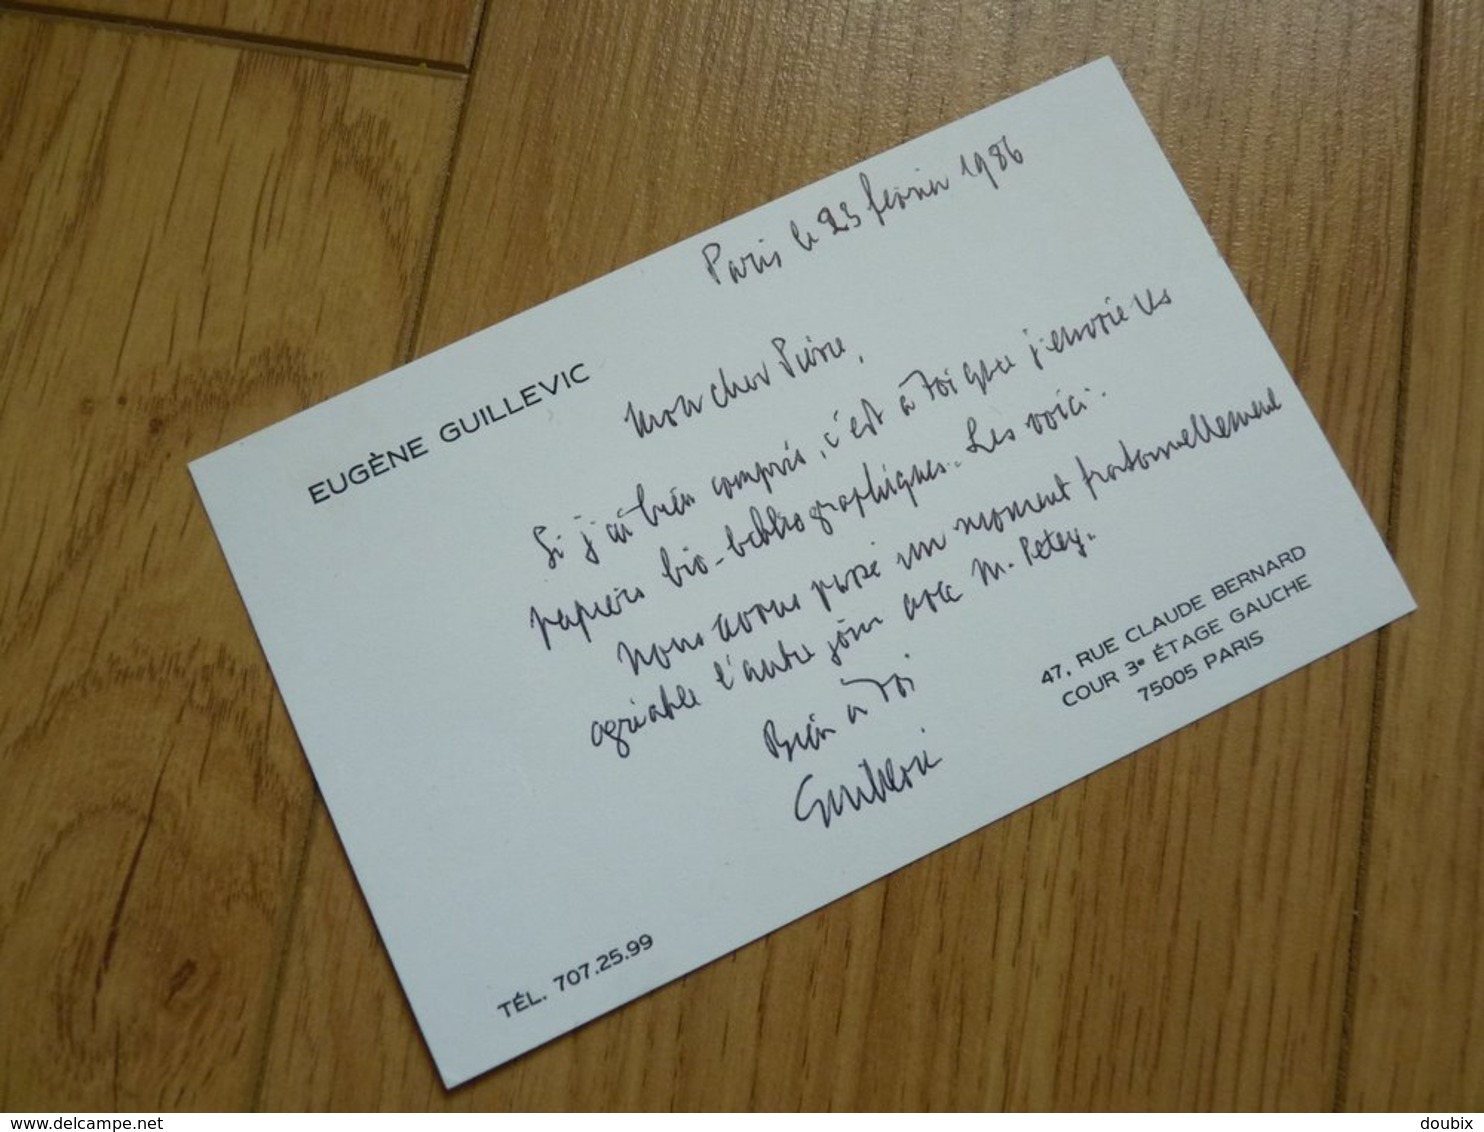 Paris le 23 février 1986
EUGÈNE GUILLEVIC
Mon cher Pierre,
Si j'ai bien compris, c'est à toi que j'envoie les
papiers bio-bibliographiques. Les voici.
Nous avons passé un moment fraternellement
agréable l'autre jour avec M. Petey.
Bien à toi
Guillevic
47, RUE CLAUDE BERNARD
COUR 3e ÉTAGE GAUCHE
75005 PARIS
TÉL. 707.25.99
www.delcampe.net
doubix